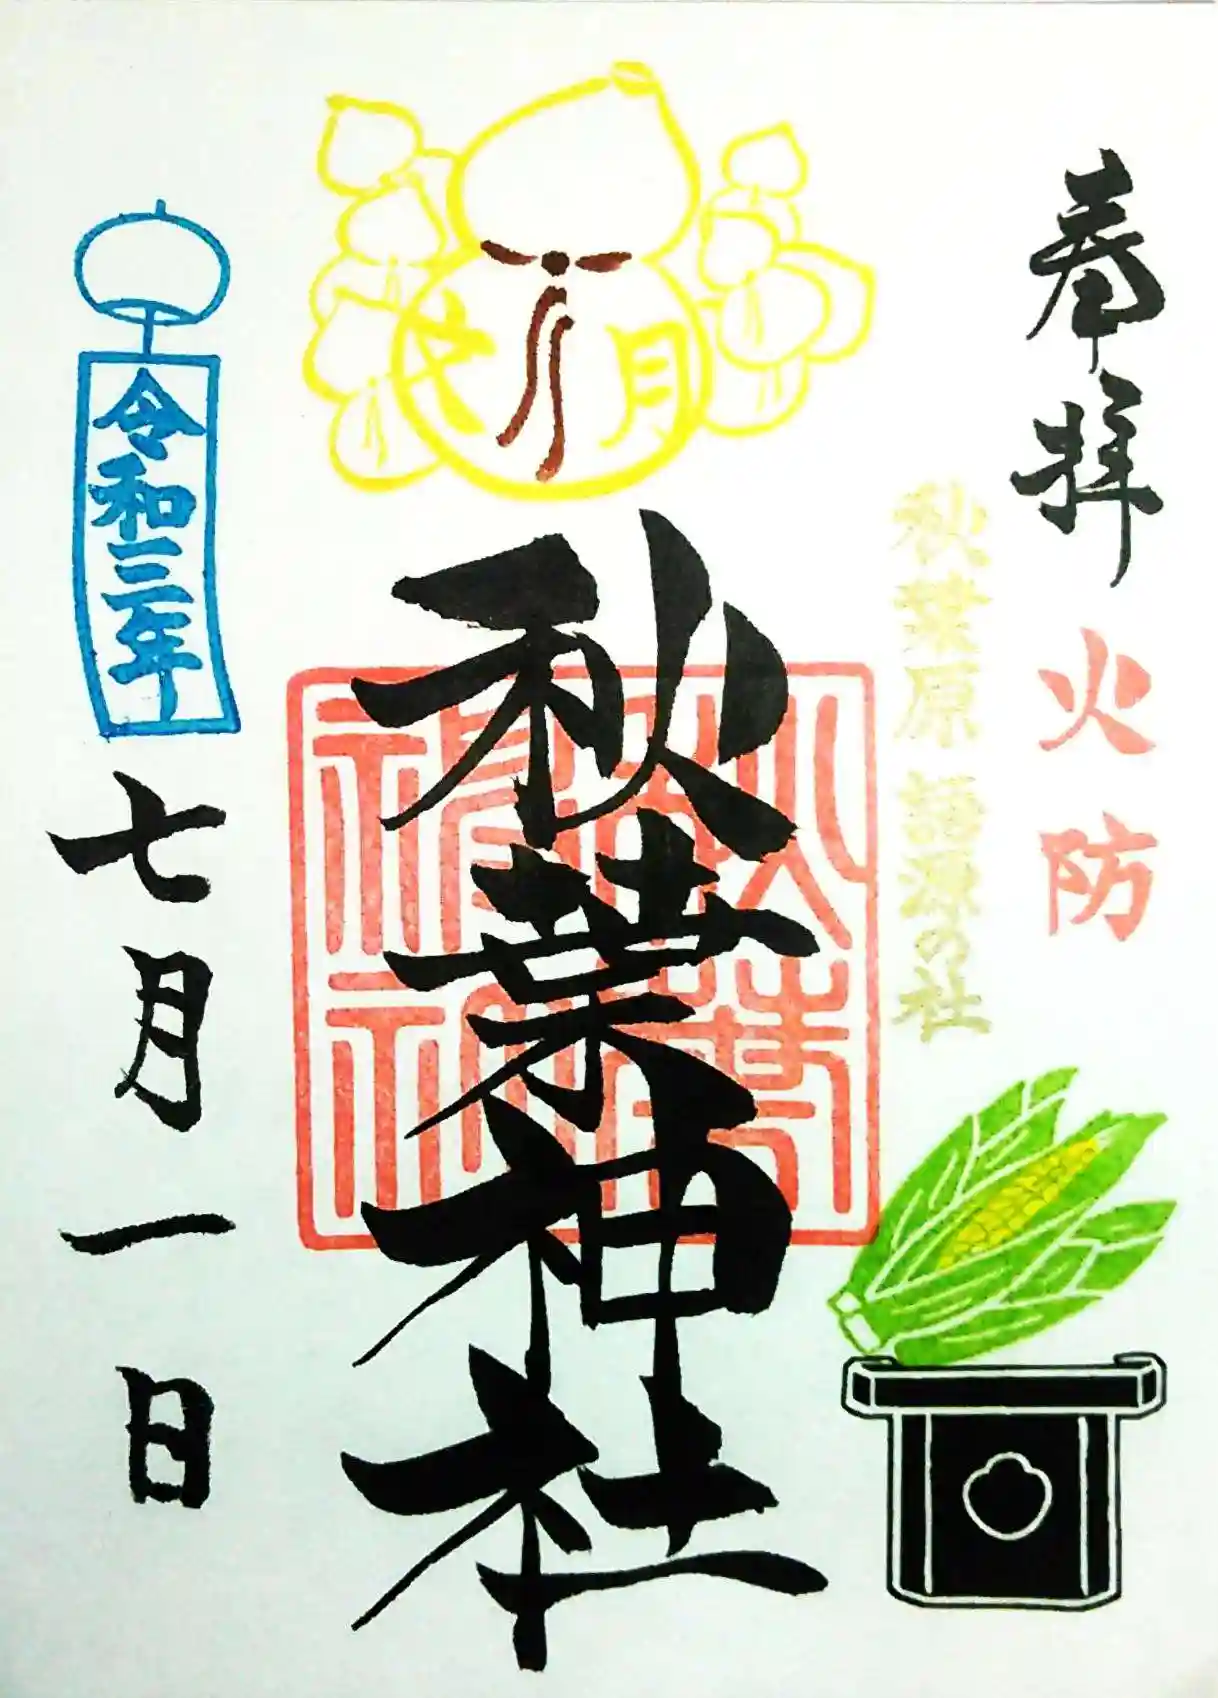 奉拝
火防
秋葉原 語源の社
文月
秋葉神社
秋葉神社
令和三年
七月一日